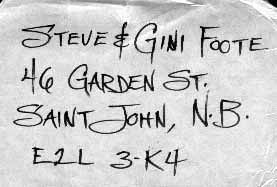 STEVE & GINI FOOTE
46 GARDEN ST.
SAINT JOHN, N.B.
E2L 3-K4